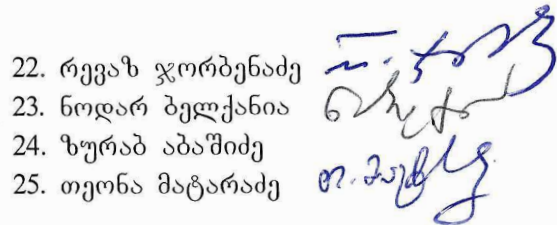 22. რევაზ ჯორბენაძე
23. ნოდარ ბელქანია
24. ზურაბ აბაშიძე
25. თეონა მატარაძე